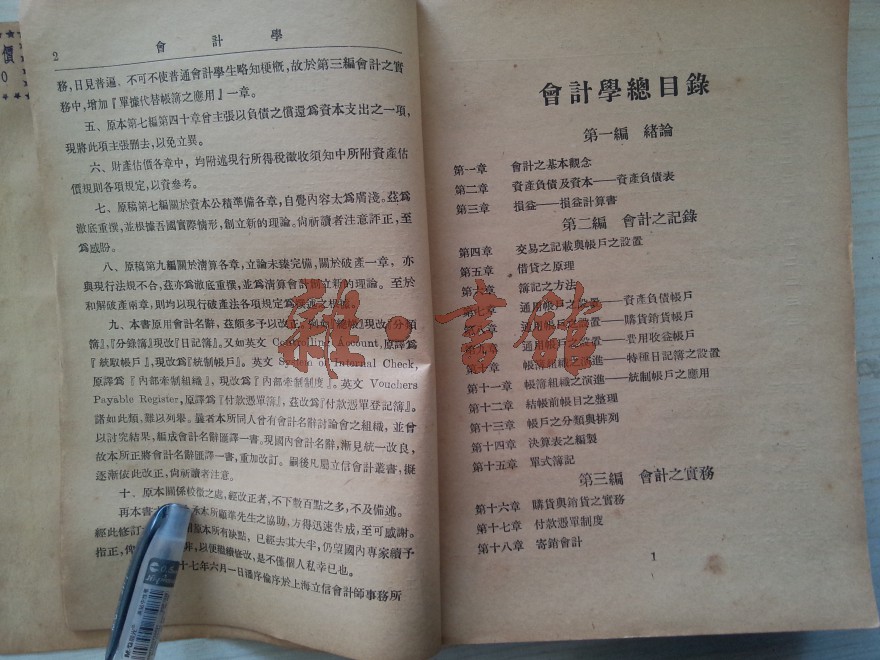 價
0
2 會計學
務,日見普遍、不可不使普通會計學生略知梗概,故於第三編會計之實
務中,增加『單據代替帳簿之應用』一章。
五、原本第七編第四十章曾主張以負債之償還爲資本支出之一項,
現將此項主張删去,以免立異。
六、財產估價各章中,均附述現行所得稅徵收須知中所附資產估
價規則各項規定,以資參考。
七、原稿第七編關於資本公積準備各章,自覺內容太爲膚淺。茲爲
徹底重撰,並根據吾國實際情形,創立新的理論。尙祈讀者注意評正,至
爲感盼。
八、原稿第九編關於淸算各章,立論未臻完備,關於破產一章,亦
與現行法規不合,茲亦爲徹底重撰,並爲淸算會計創立新的理論。至於
和解破產兩章,則均以現行破產法各項規定爲
九、本書原用會計名辭,茲頗多予以改正。例如『總帳』現改『分類
簿』,『分錄簿』現改『日記簿』。又如英文 Controlling Account,原譯爲
『統馭帳戶』,現改爲『統制帳戶』。英文 System of Internal Check,
原譯爲『內部牽制組織』,現改爲『內部牽制制度』。英文 Vouchers
Payable Register,原譯爲『付款憑單簿』,茲改爲『付款憑單登記簿』。
諾如此類,難以列舉。曩者本所同人曾有會計名辭討論會之組織,並曾
以討究結果,編成會計名辭匯譯一書。現國內會計名辭,漸見統一改良,
故本所正將會計名辭匯譯一書,重加改訂。嗣後凡屬立信會計叢書,擬
逐漸依此改正,尙祈讀者注意。
十、原本關係較微之處,經改正者,不下數百點之多,不及備述。
再本書 承本所顧準先生之協助,方得迅速告成,至可感謝。
經此修訂 原本所有缺點,已經去其大半,仍望國內專家續予
指正,俾 以便繼續修改,是不僅個人私幸已也。
十七年六月一日潘序倫序於上海立信會計師事務所
會計學總目錄
第一編 緒論
第一章 會計之基本觀念
第二章 資產負債及資本——資產負債表
第三章 損益——損益計算書
第二編 會計之記錄
第四章 交易之記載與帳戶之設置
第五章 借貸之原理
第六章 簿記之方法
第七章 通用帳戶之設置——資產負債帳戶
第八章 通用帳戶之設置——購貨銷貨帳戶
第九章 通用帳戶之設置——費用收益帳戶
第十章 帳簿組織之演進——特種日記簿之設置
第十一章 帳簿組織之演進——統制帳戶之應用
第十二章 結帳前帳目之整理
第十三章 帳戶之分類與排列
第十四章 決算表之編製
第十五章 單式簿記
第三編 會計之實務
第十六章 購貨與銷貨之實務
第十七章 付款憑單制度
第十八章 寄銷會計
1